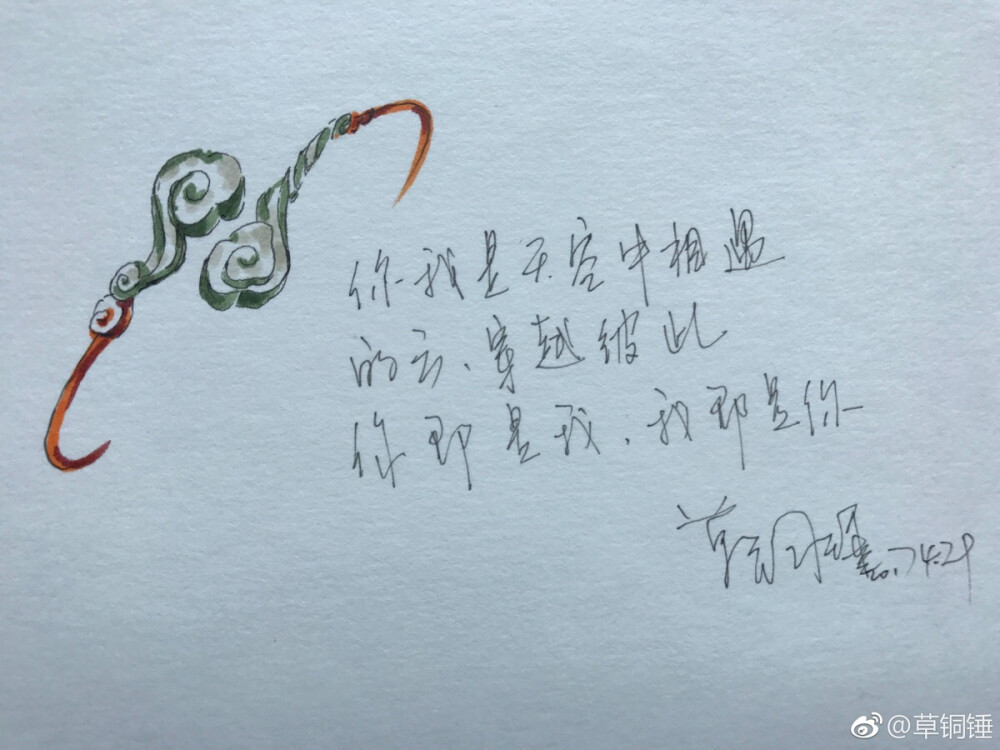 你我是天空中相遇
的云、穿越彼此
你即是我、我即是你
草铜锤 2017.4.29
@草铜锤